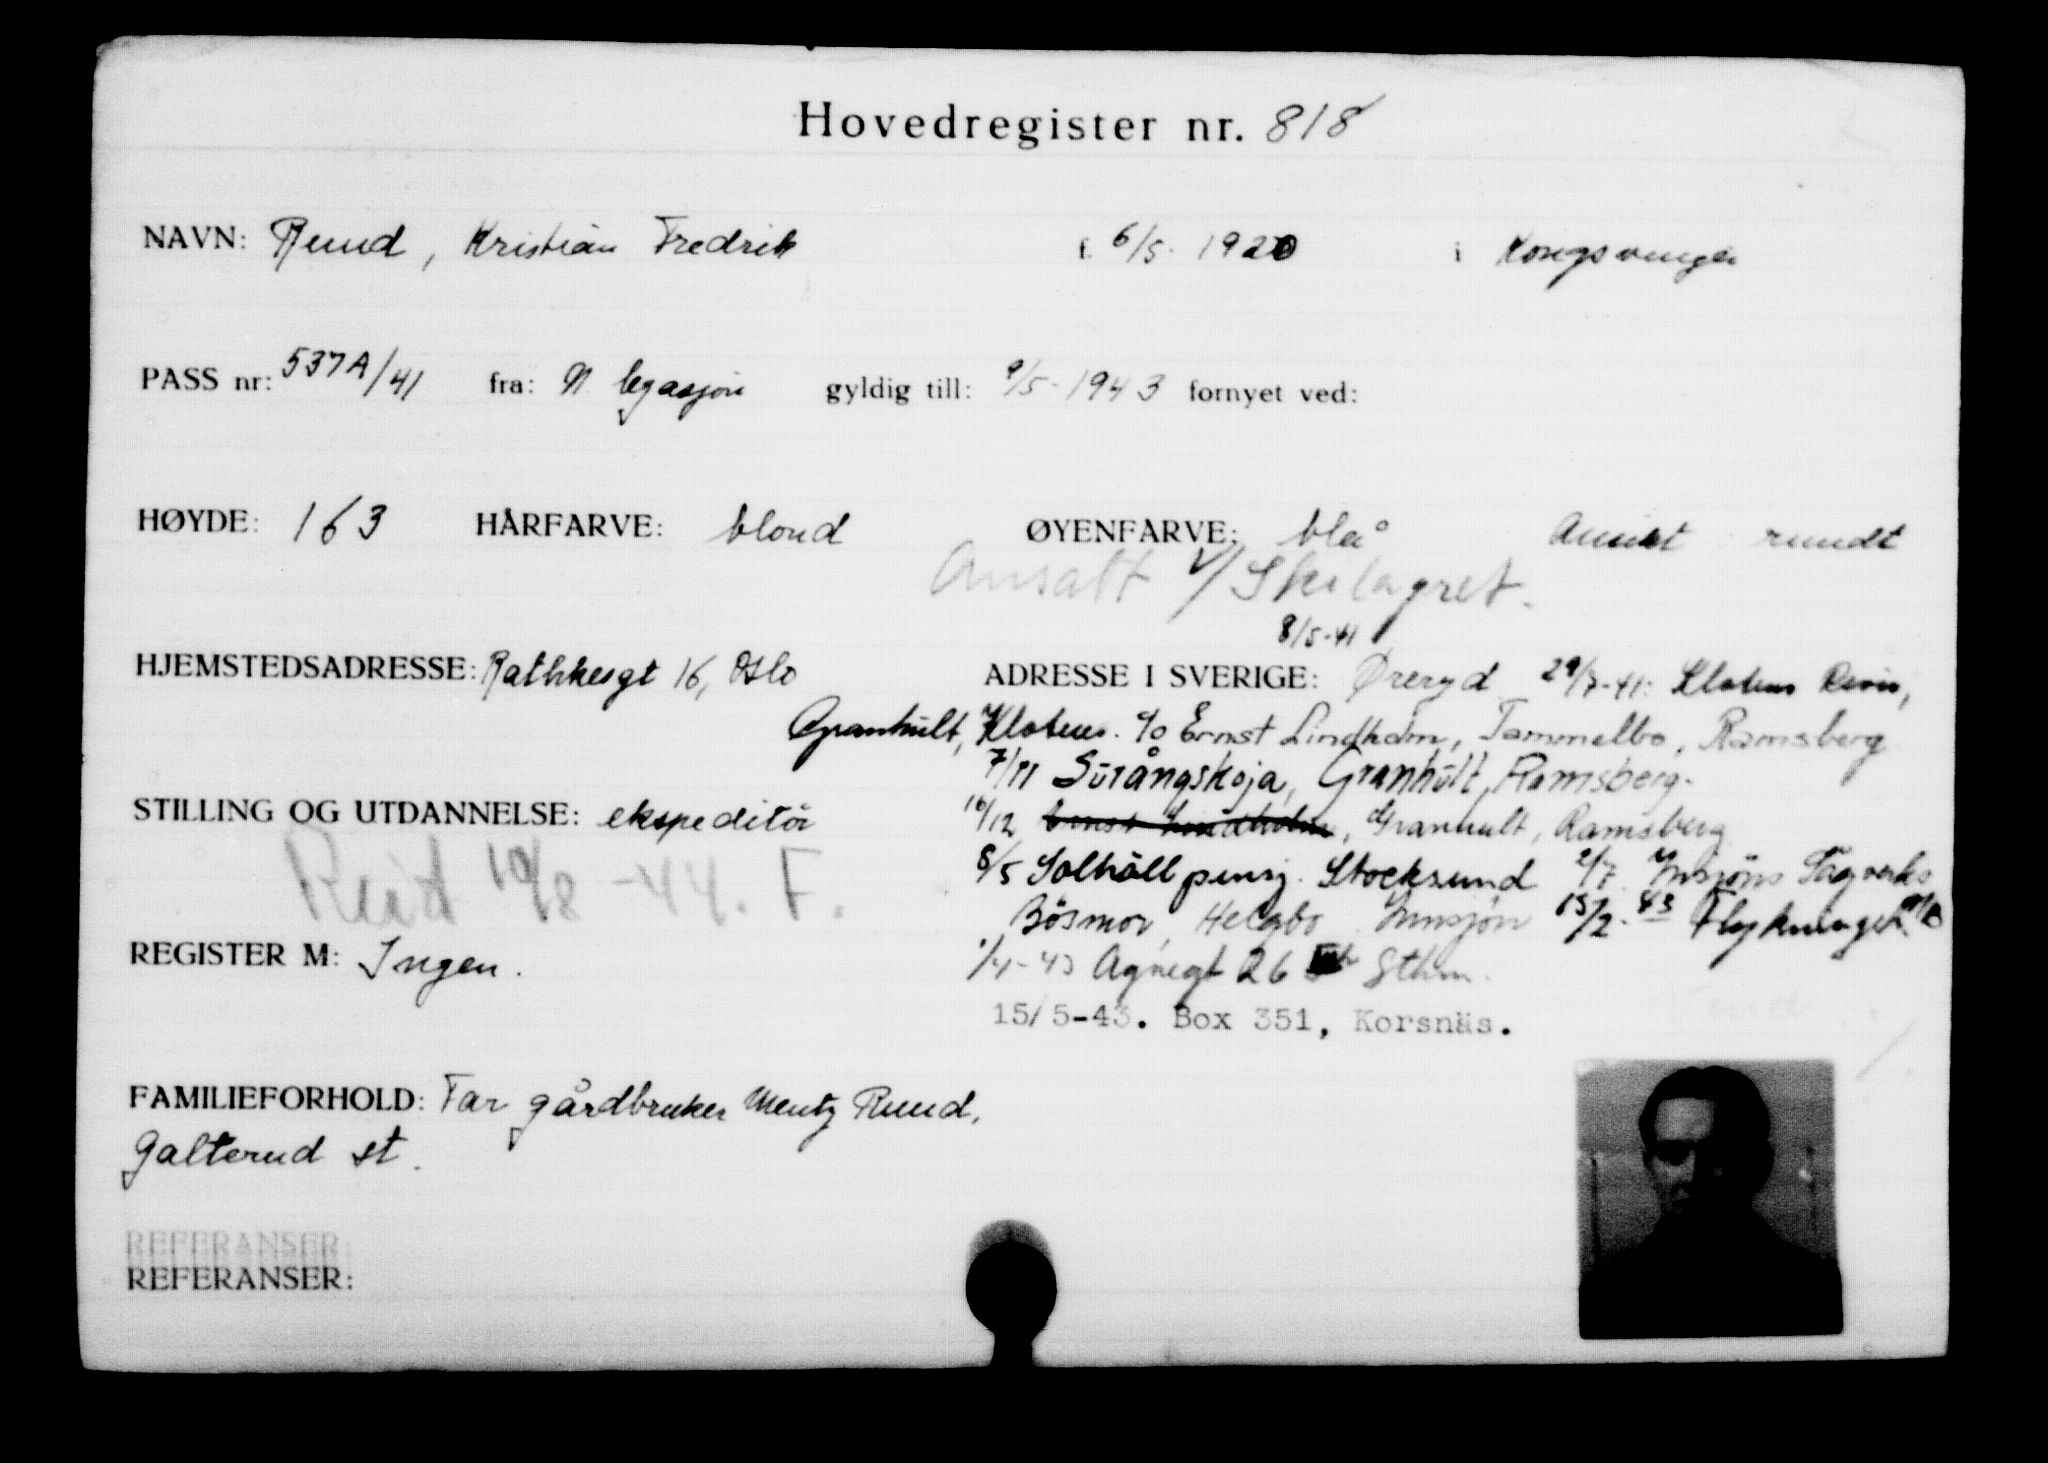 Hovedregister nr. 818
NAVN: Ruud, Kristian Fredrik f. 6/5. 1920 i Kongsvinger
PASS nr: 537A/41 fra: N. legasjon gyldig till: 9/5-1943 fornyet ved:
HØYDE: 163 HÅRFARVE: blond ØYENFARVE: blå Ansikt rundt
Ansatt v/ Skilagret.
8/5-41
HJEMSTEDSADRESSE: Rathkesgt 16, Oslo ADRESSE I SVERIGE: Øreryd 29/7-41: Klotens Revir,
Granhult, Kloten. c/o Ernst Lindholm, Tammelbo, Ramsberg
7/11 Surångskoja, Granhult, Ramsberg.
STILLING OG UTDANNELSE: ekspeditör 16/12 Ernst Lindholm, Granhult, Ramsberg
Reist 10/8 -44. F.
8/5 Solhäll pensj. Stocksund 2/7 Insjöns Sågverks
Bösmor, Helgbo Insjön 15/2-43 Flykninget
REGISTER M: Ingen. 1/4-43 Agnegt 26 Sthm.
15/5-43. Box 351, Korsnäs.
FAMILIEFORHOLD: Far gårdbruker Mentz Ruud,
Galterud st.
REFERANSER
REFERANSER: